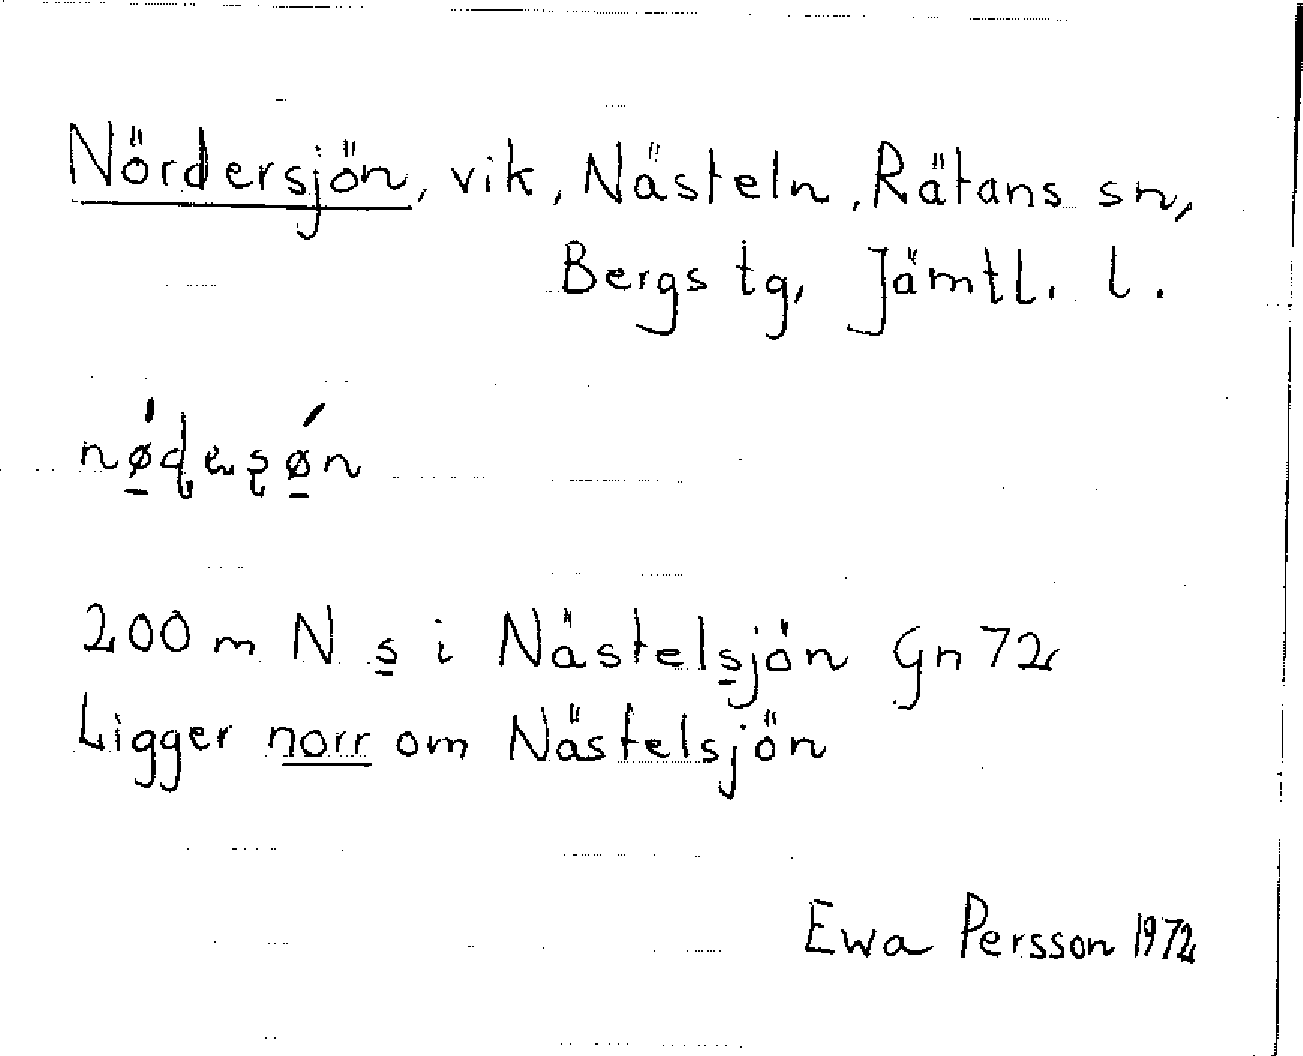 Nördersjön, vik, Nästeln, Rätans sn,
Bergs tg, Jämtl. l.
200 m N s i Nästelsjön Gn 72
Ligger norr om Nästelsjön
Ewa Persson 1972